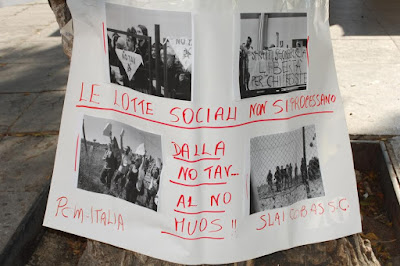 LE LOTTE SOCIALI NON SI PROCESSANO
DALLA
NO TAV...
AL NO
MUOS !!
PCM-ITALIA
SLAI COBAS S.C.